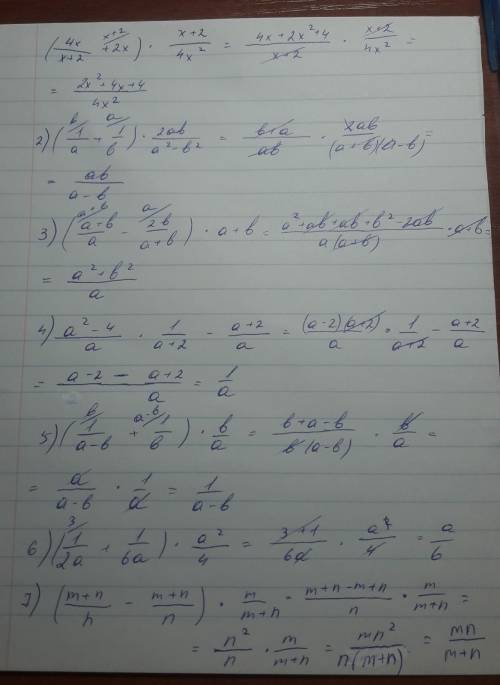 (4x/(x+2) + 2x) · (x+2)/(4x²) = (4x+2x²+4)/(x+2) · (x+2)/(4x²) =
= (2x²+4x+4)/(4x²)
2) (1/a + 1/b) · 2ab/(a²-b²) = (b+a)/(ab) · 2ab/((a+b)(a-b)) =
= ab/(a-b)
3) ((a+b)/a - 2b/(a+b)) · a+b = (a²+ab+ab+b²-2ab)/(a(a+b)) · a+b =
= (a²+b²)/a
4) (a²-4)/a · 1/(a+2) - (a+2)/a = ((a-2)(a+2))/a · 1/(a+2) - (a+2)/a
= (a-2 - a+2)/a = 1/a
5) (1/(a-b) + 1/b) · b/a = (b+a-b)/(b(a-b)) · b/a =
= a/(a-b) · 1/a = 1/(a-b)
6) (1/(2a) + 1/(6a)) · a²/4 = (3+1)/(6a) · a²/4 = a/6
7) ((m+n)/n - (m+n)/n) · m/(m+n) = (m+n-m+n)/n · m/(m+n) =
= n²/n · m/(m+n) = mn²/(n(m+n)) = mn/(m+n)